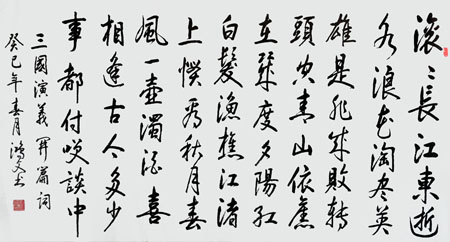 滚〻長江東逝
水浪花淘尽英
雄是非成敗转
頭空青山依舊
在幾度夕陽红
白髮漁樵江渚
上惯看秋月春
風一壺濁酒喜
相逢古今多少
事都付笑談中
三國演義開篇词
癸巳年春月鴻文书